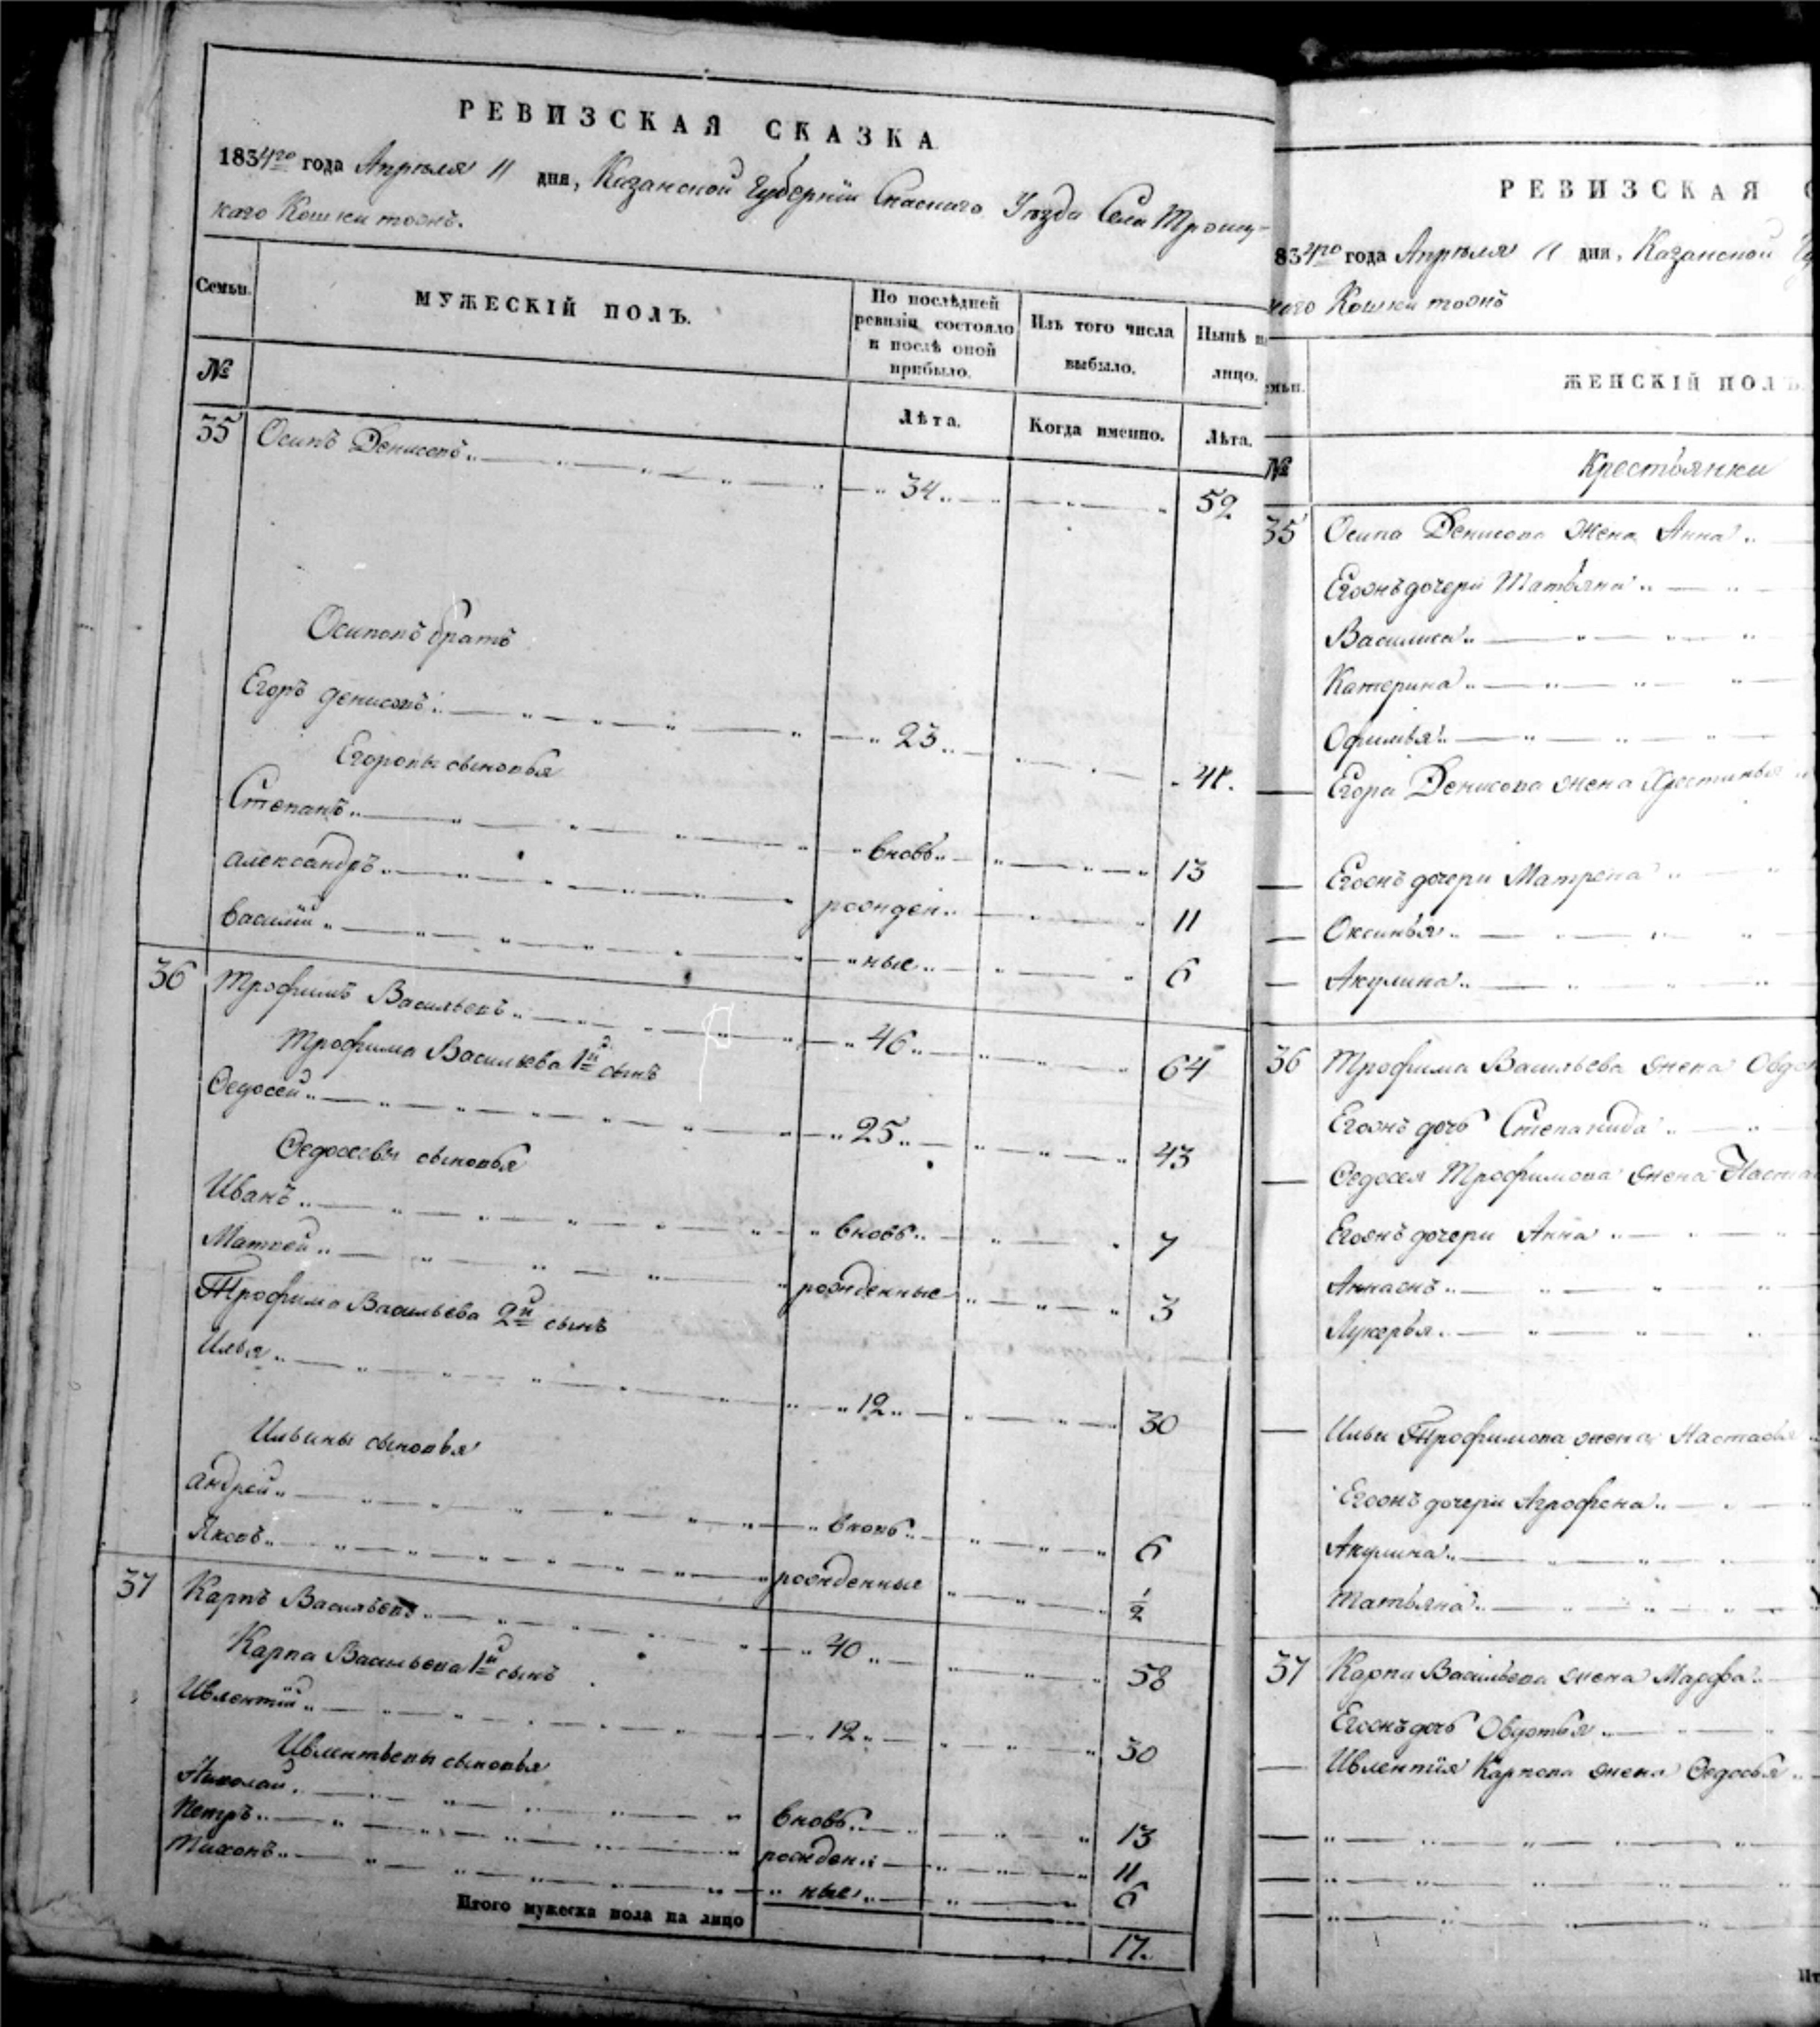 РЕВИЗСКАЯ СКАЗКА
1834го года Апреля 11 дня, Казанской Губернiи Спаскаго Уезда Села Троиц-
каго Кошки тожъ.
Семьи. МУЖЕСКIЙ ПОЛЪ. По послѣдней ревизiи состояло и послѣ оной прибыло. Изъ того числа выбыло. Нынѣ на лицо.
№ Лѣта. Когда именно. Лѣта.
35 Осипъ Денисовъ 34 52
Осиповъ братъ
Егоръ денисовъ 23 41.
Егоровы сыновья
Степанъ вновь 13
александръ рожден 11
василiй ные 6
36 Трофимъ Васильевъ 46 64
Трофима Васильева 1й сынъ
Федосей 25 43
Федосеевы сыновья
Иванъ вновь 7
Матвей рожденные 3
Трофима Васильева 2й сынъ
Илья 12 30
Ильины сыновья
андрей вновь 6
Яковъ рожденные 1/2
37 Карпъ Васильевъ 40 58
Карпа Васильева 1й сынъ
Ивлентiй 12 30
Ивлентьевы сыновья
Николай вновь 13
Петръ рожден 11
Тихонъ ные 6
Итого мужеска пола на лицо 17.
РЕВИЗСКАЯ С
834го года Апреля 11 дня, Казанской Гу
каго Кошки тожъ
емьи. ЖЕНСКIЙ ПОЛЪ.
№ Крестьянки
35 Осипа Денисова жена Анна
Егожъ дочери Татьяна
Василиса
Катерина
Офимья
Егора Денисова жена Хрестинья
Егожъ дочери Матрена
Оксинья
Акулина
36 Трофима Васильева жена Овдо
Егожъ дочь Степанида
Федосея Трофимова жена Наста
Егожъ дочери Анна
Аннажъ
Лукерья
Ильи Трофимова жена Настасья
Егожъ дочери Агрофена
Акулина
Татьяна
37 Карпа Васильева жена Марфа
Егожъ дочь Овдотья
Ивлентiя Карпова жена Федосья
Ит